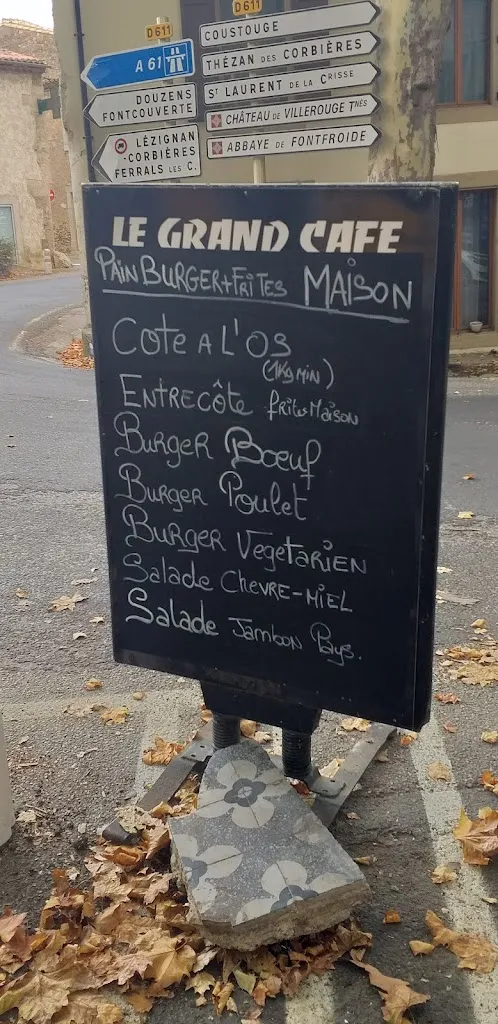 D 611
D 611
A 61
DOUZENS
FONTCOUVERTE
LÉZIGNAN
-CORBIÈRES
FERRALS LES C.
COUSTOUGE
THÉZAN DES CORBIÈRES
ST LAURENT DE LA CBRISSE
CHÂTEAU DE VILLEROUGE TNÈS
ABBAYE DE FONTFROIDE
LE GRAND CAFE
PAIN BURGER+FRITES MAISON
COTE A L'OS
(1Kg MIN)
ENTRECÔTE frites Maison
BURGER Bœuf
Burger Poulet
BURGER VEGETARIEN
Salade CHEVRE-MIEL
Salade Jambon Pays.